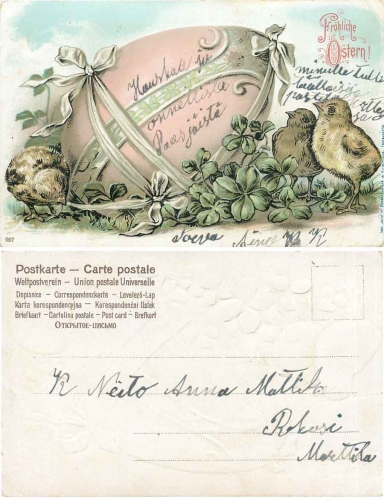 Fröhliche
Ostern!
Hauskaa ja
onnellista
Pääsiäistä
toivoo
Postkarte — Carte postale
Weltpostverein — Union postale Universelle
Dopisnice — Correspondenzkarte — Levelező-Lap
Karta korespondencyjna — Korespondenční lístek
Briefkaart — Cartolina postale — Post card — Brefkort
Открытое-письмо
K Neito Anna Mattila
Rokosi
Marttila